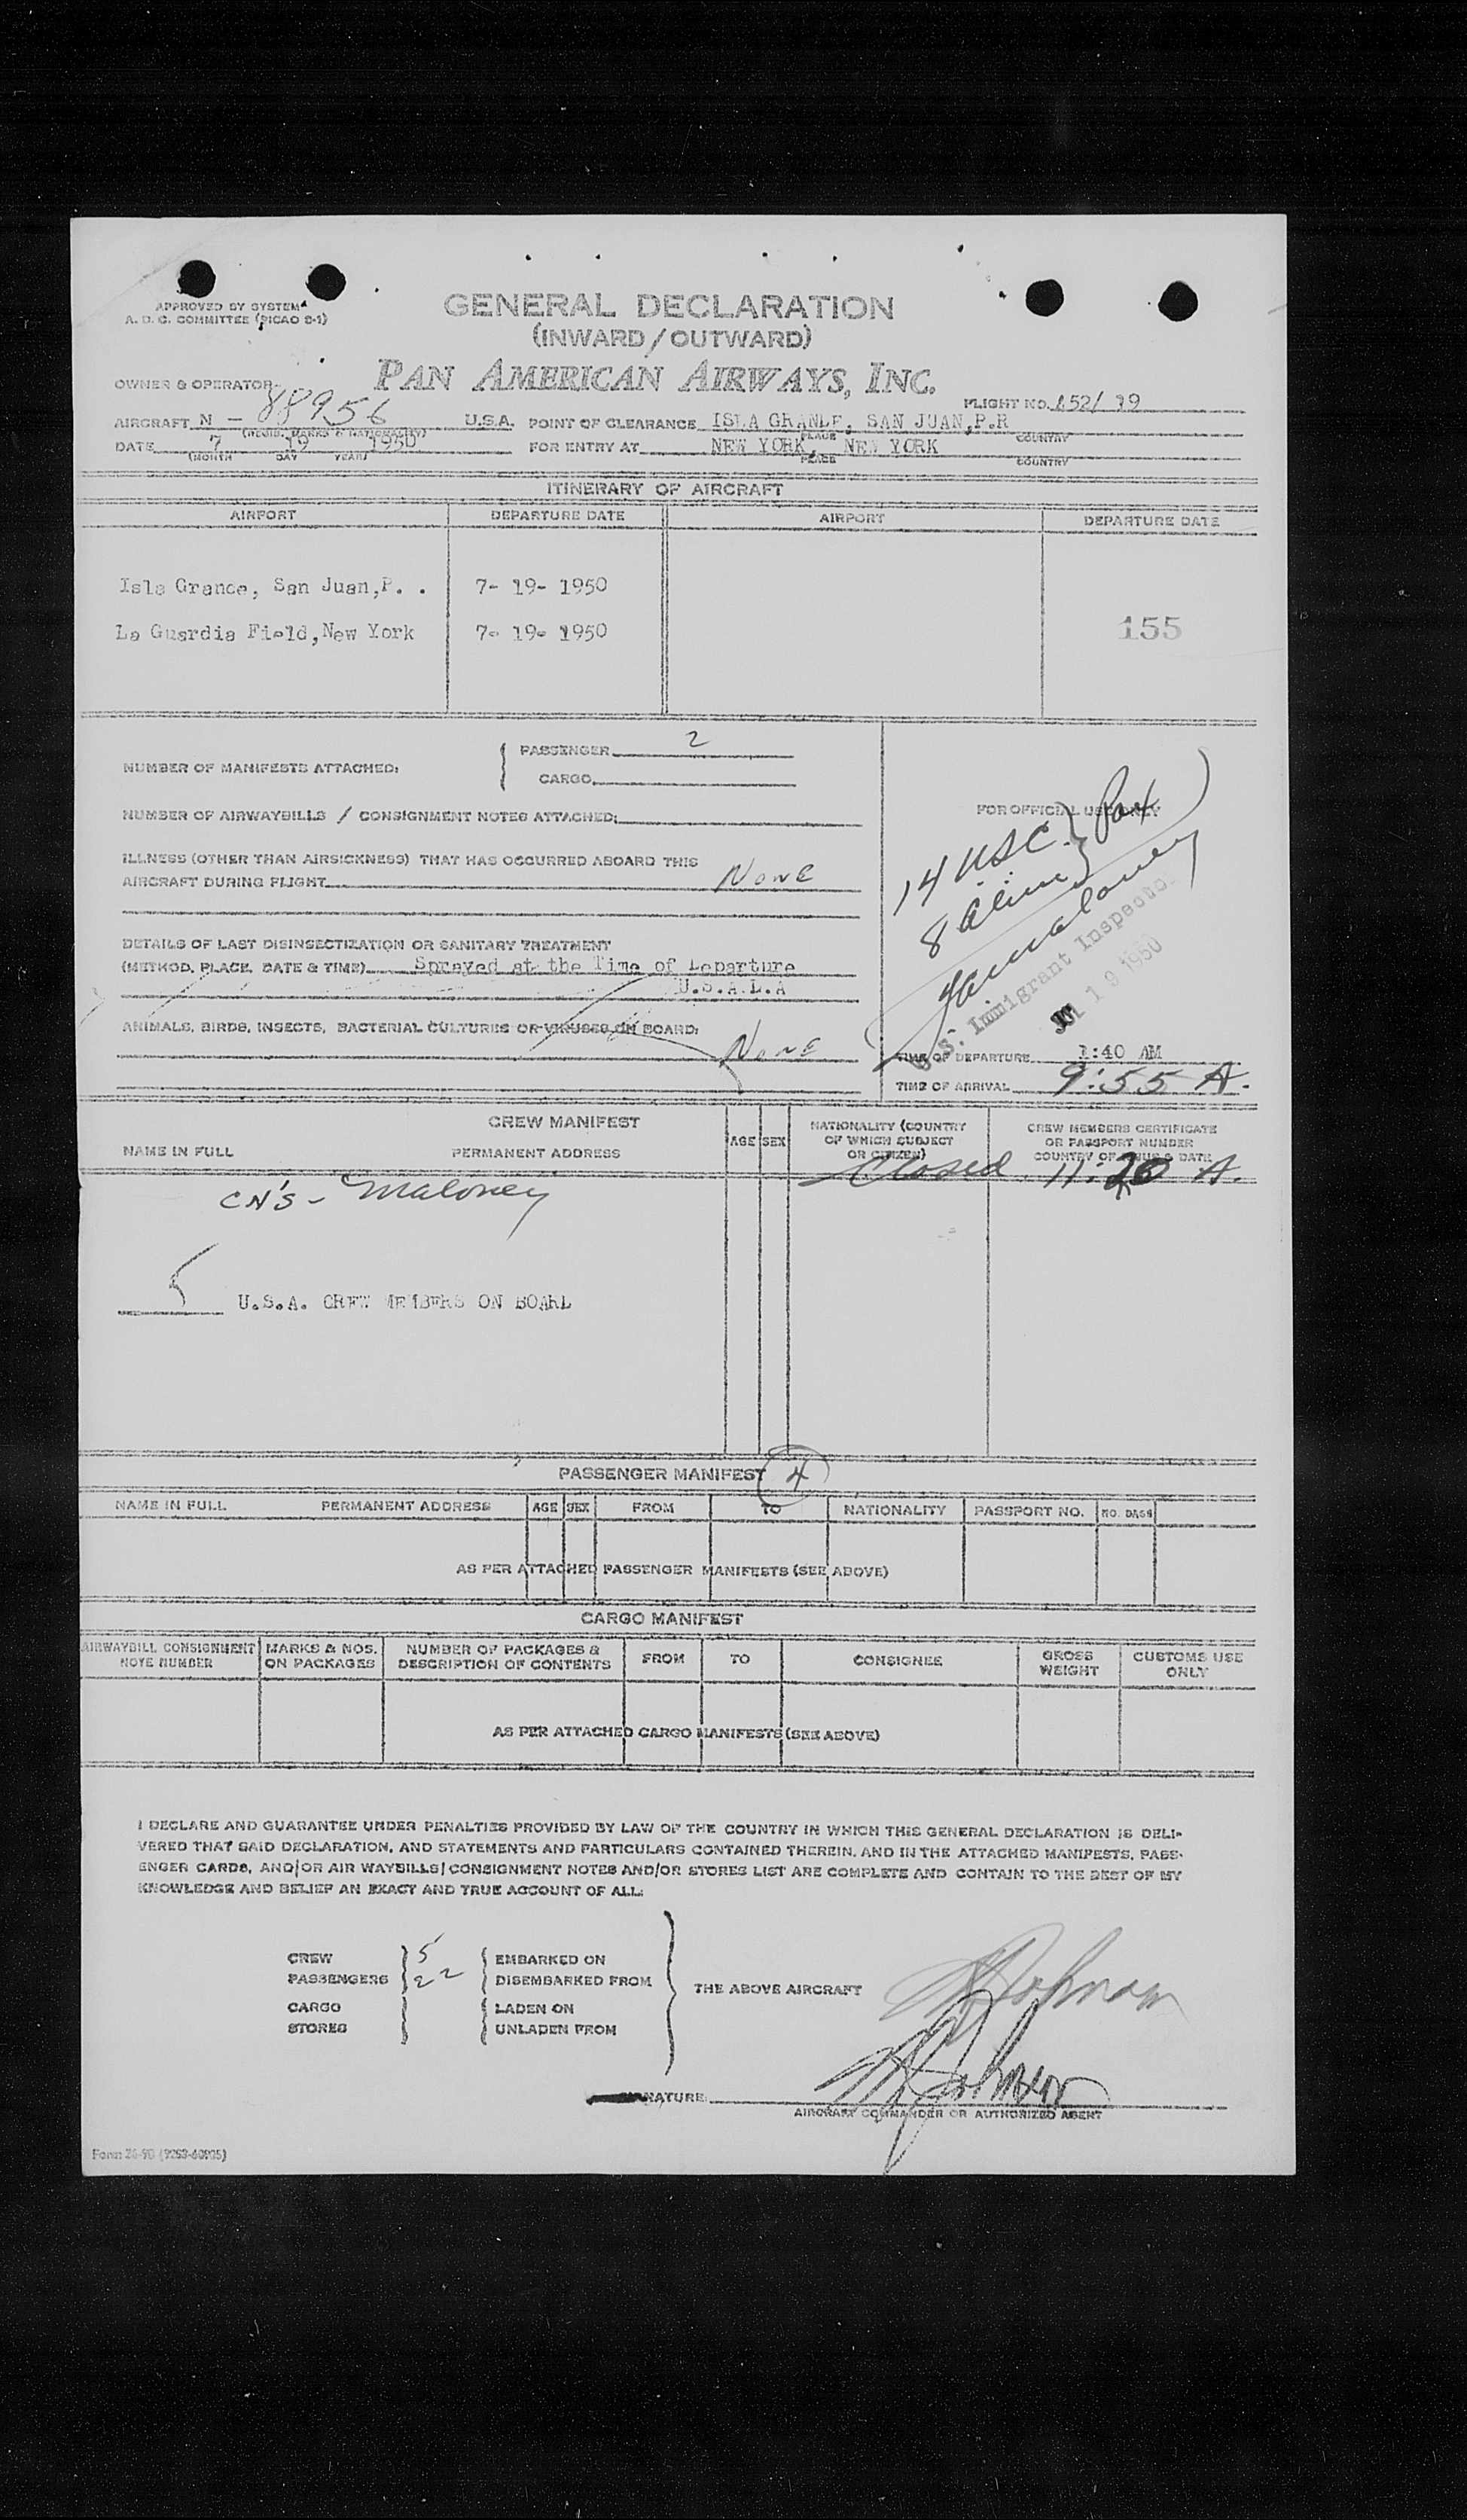 APPROVED BY SYSTEM
A. D. C. COMMITTEE (PICAO S-1)
GENERAL DECLARATION
(INWARD / OUTWARD)
OWNER & OPERATOR-
PAN AMERICAN AIRWAYS, INC.
FLIGHT NO. 252/ 19
AIRCRAFT N - 88956 U.S.A.
POINT OF CLEARANCE ISLA GRANDE, SAN JUAN,P.R
PLACE COUNTRY
DATE 7 19 1950
(MONTH DAY YEAR)
FOR ENTRY AT NEW YORK, NEW YORK
PLACE COUNTRY
ITINERARY OF AIRCRAFT
AIRPORT DEPARTURE DATE AIRPORT DEPARTURE DATE
Isla Grande, San Juan,P. . 7- 19- 1950
La Guardia Field,New York 7- 19- 1950
155
NUMBER OF MANIFESTS ATTACHED:
PASSENGER 2
CARGO
NUMBER OF AIRWAYBILLS / CONSIGNMENT NOTES ATTACHED:
ILLNESS (OTHER THAN AIRSICKNESS) THAT HAS OCCURRED ABOARD THIS
AIRCRAFT DURING FLIGHT None
DETAILS OF LAST DISINSECTIZATION OR SANITARY TREATMENT
(METHOD, PLACE, DATE & TIME) Sprayed at the Time of Departure
ANIMALS, BIRDS, INSECTS, BACTERIAL CULTURES OR VIRUSES ON BOARD:
None
FOR OFFICIAL USE ONLY
14 USC } Pax
8 Alien }
U.S. Immigrant Inspector
JUL 19 1950
TIME OF DEPARTURE 1:40 AM
TIME OF ARRIVAL 9:55 A.
CREW MANIFEST
NAME IN FULL PERMANENT ADDRESS AGE SEX
NATIONALITY (COUNTRY
OF WHICH SUBJECT
OR CITIZEN)
CREW MEMBERS CERTIFICATE
OR PASSPORT NUMBER
COUNTRY OF ISSUE & DATE
Closed 11:20 A.
CN'S - Maloney
5 U.S.A. CREW MEMBERS ON BOARD
PASSENGER MANIFEST 4
NAME IN FULL PERMANENT ADDRESS AGE SEX FROM TO NATIONALITY PASSPORT NO. NO. BAGS
AS PER ATTACHED PASSENGER MANIFESTS (SEE ABOVE)
CARGO MANIFEST
AIRWAYBILL CONSIGNMENT
NOTE NUMBER
MARKS & NOS.
ON PACKAGES
NUMBER OF PACKAGES &
DESCRIPTION OF CONTENTS
FROM TO CONSIGNEE
GROSS
WEIGHT
CUSTOMS USE
ONLY
AS PER ATTACHED CARGO MANIFESTS (SEE ABOVE)
I DECLARE AND GUARANTEE UNDER PENALTIES PROVIDED BY LAW OF THE COUNTRY IN WHICH THIS GENERAL DECLARATION IS DELI-
VERED THAT SAID DECLARATION, AND STATEMENTS AND PARTICULARS CONTAINED THEREIN, AND IN THE ATTACHED MANIFESTS, PASS-
ENGER CARDS, AND/OR AIR WAYBILLS/CONSIGNMENT NOTES AND/OR STORES LIST ARE COMPLETE AND CONTAIN TO THE BEST OF MY
KNOWLEDGE AND BELIEF AN EXACT AND TRUE ACCOUNT OF ALL:
CREW 5 EMBARKED ON
PASSENGERS 22 DISEMBARKED FROM
THE ABOVE AIRCRAFT
CARGO LADEN ON
STORES UNLADEN FROM
SIGNATURE:
AIRCRAFT COMMANDER OR AUTHORIZED AGENT